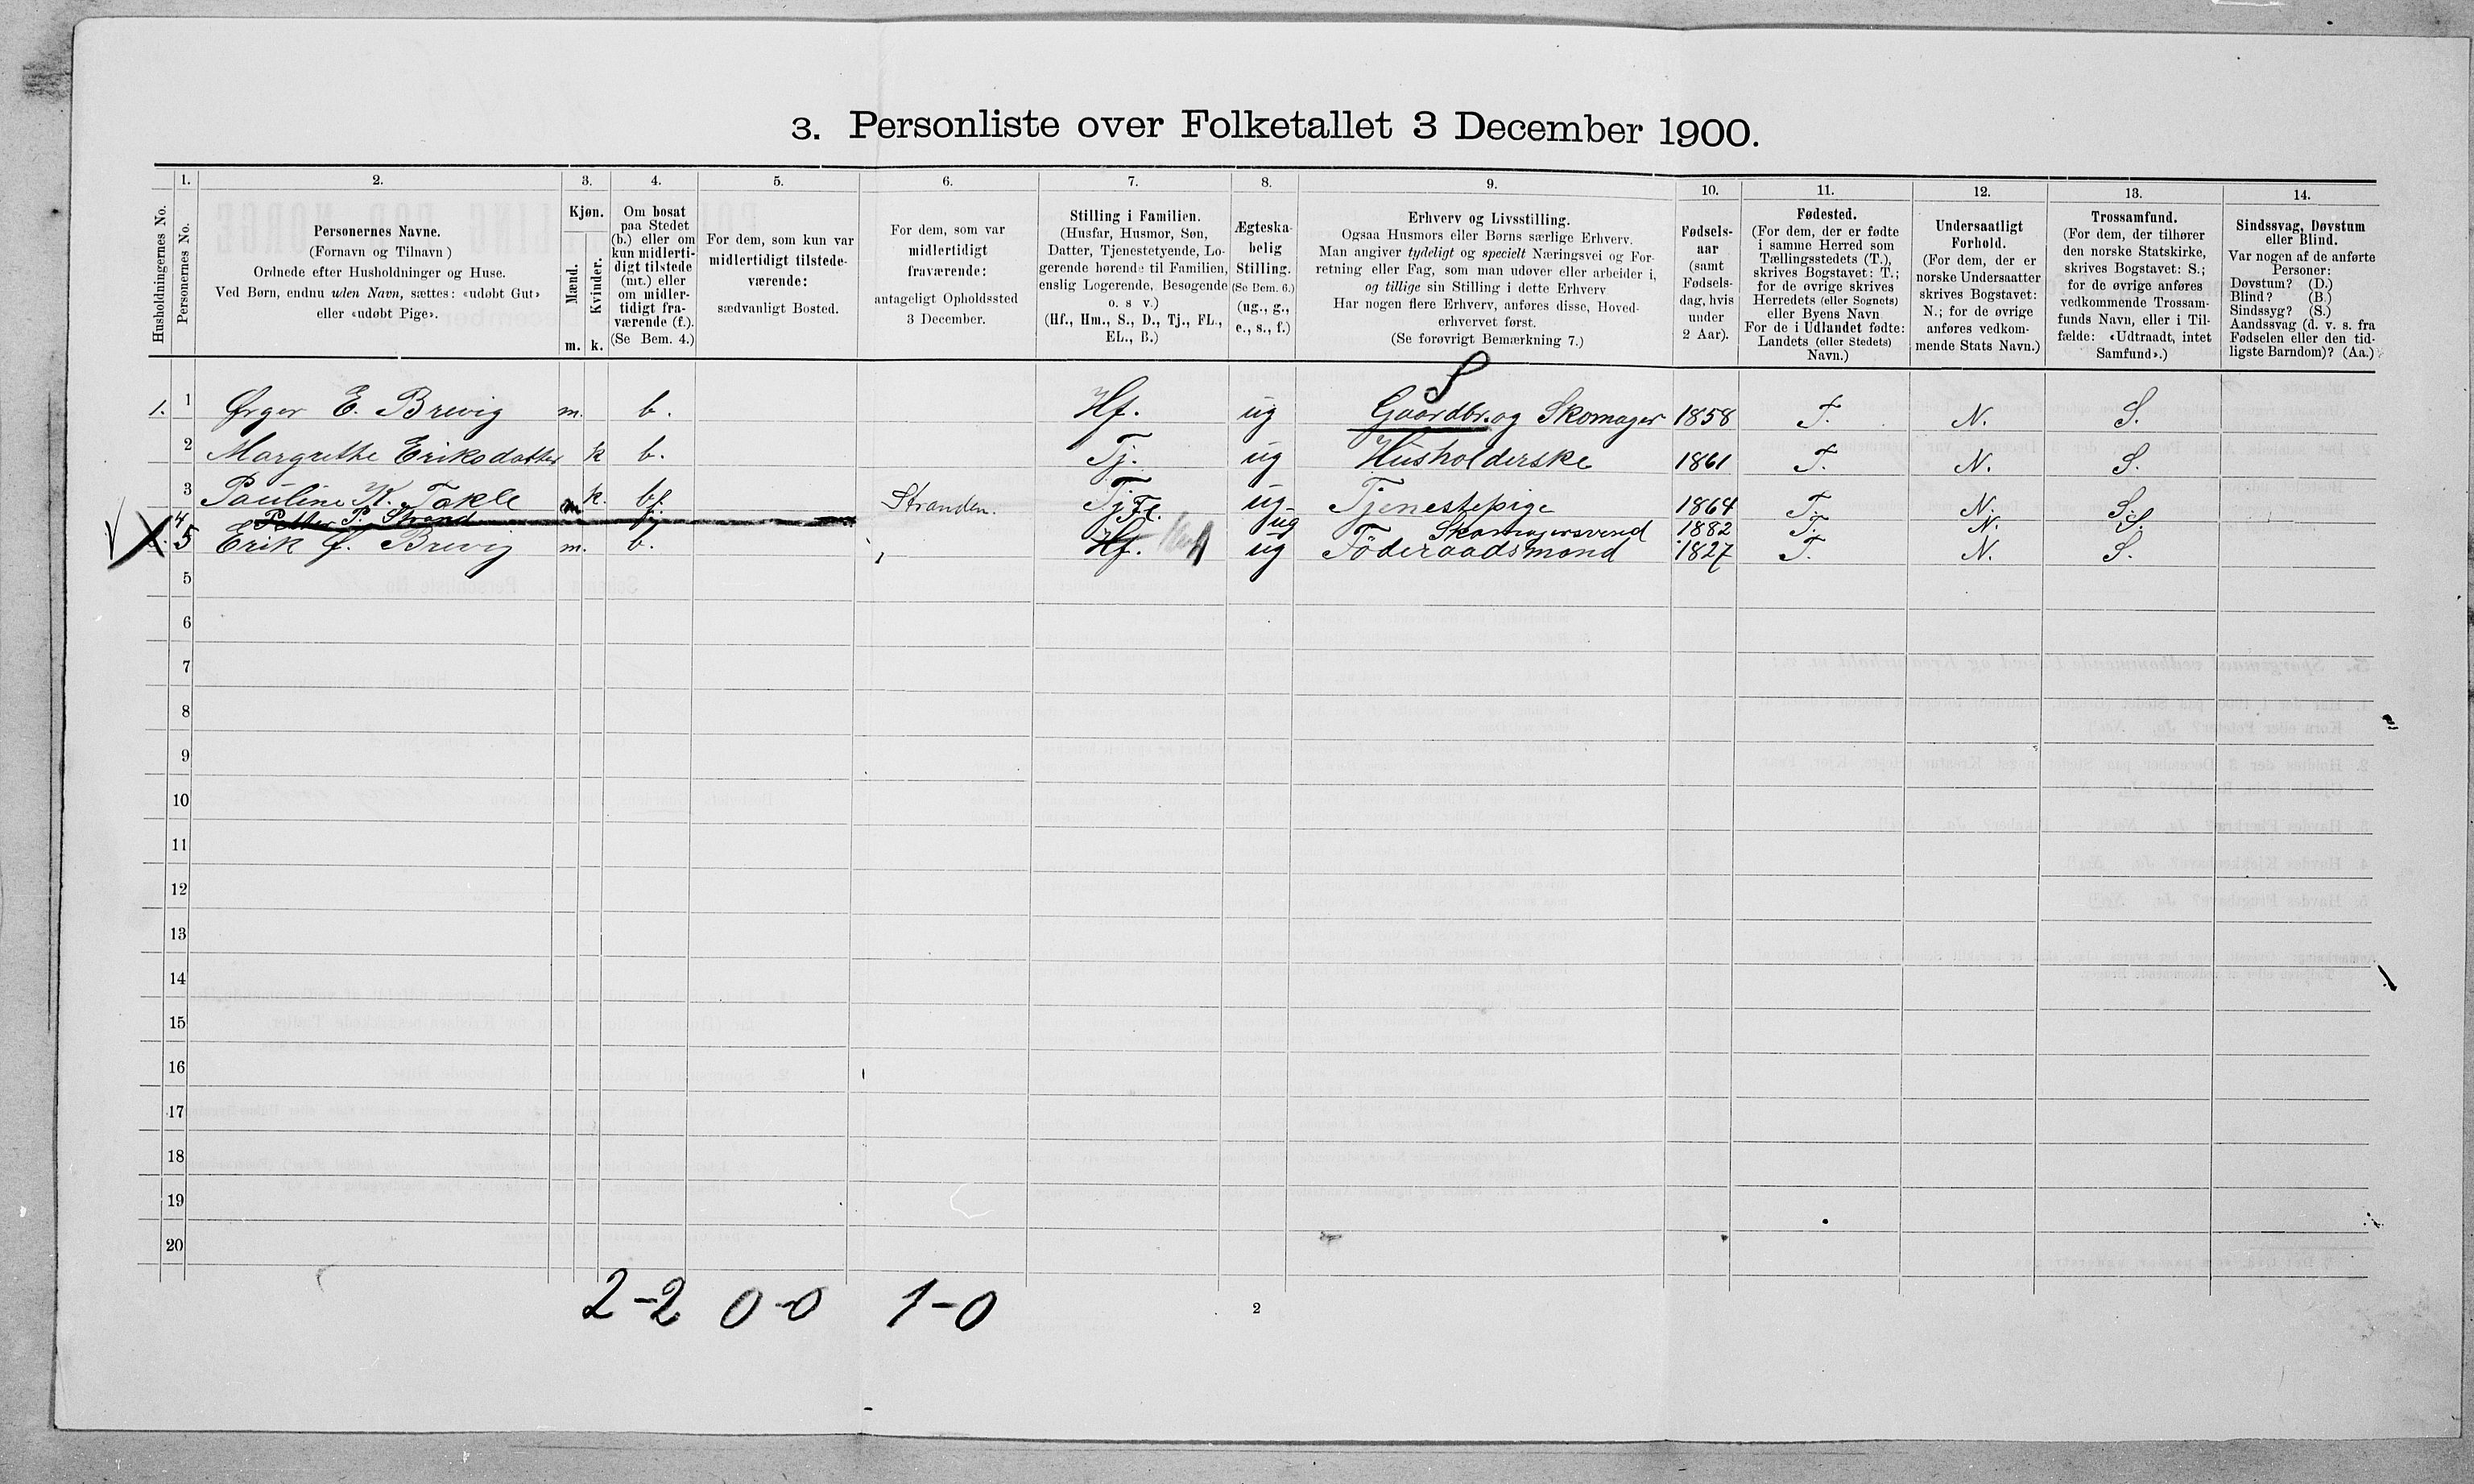 3. Personliste over Folketallet 3 December 1900.
Husholdningernes No.
1.
Personernes No.
2.
Personernes Navne.
(Fornavn og Tilnavn)
Ordnede efter Husholdninger og Huse.
Ved Børn, endnu uden Navn, sættes: «udøbt Gut»
eller «udøbt Pige».
3.
Kjøn.
Mænd.
Kvinder.
m. k.
4.
Om bosat
paa Stedet
(b.) eller om
kun midlerti-
digt tilstede
(mt.) eller
om midler-
tidigt fra-
værende (f.).
(Se Bem. 4.)
5.
For dem, som kun var
midlertidigt tilstede-
værende:
sædvanligt Bosted.
6.
For dem, som var
midlertidigt
fraværende:
antageligt Opholdssted
3 December.
7.
Stilling i Familien.
(Husfar, Husmor, Søn,
Datter, Tjenestetyende, Lo-
gerende hørende til Familien,
enslig Logerende, Besøgende
o. s v.)
(Hf., Hm., S., D., Tj., FL.,
EL., B.)
8.
Ægteska-
belig
Stilling.
(Se Bem. 6.)
(ug., g.,
e., s., f.)
9.
Erhverv og Livsstilling.
Ogsaa Husmors eller Børns særlige Erhverv.
Man angiver tydeligt og specielt Næringsvei og For-
retning eller Fag, som man udøver eller arbeider i,
og tillige sin Stilling i dette Erhverv
Har nogen flere Erhverv, anføres disse, Hoved-
erhvervet først.
(Se forøvrigt Bemærkning 7.)
10.
Fødsels-
aar
(samt
Fødsels-
dag, hvis
under
2 Aar).
11.
Fødested.
(For dem, der er fødte
i samme Herred som
Tællingsstedets (T.),
skrives Bogstavet: T.;
for de øvrige skrives
Herredets (eller Sognets)
eller Byens Navn
For de i Udlandet fødte:
Landets (eller Stedets)
Navn.)
12.
Undersaatligt
Forhold.
(For dem, der er
norske Undersaatter
skrives Bogstavet:
N.; for de øvrige
anføres vedkom-
mende Stats Navn.)
13.
Trossamfund.
(For dem, der tilhører
den norske Statskirke,
skrives Bogstavet: S.;
for de øvrige anføres
vedkommende Trossam-
funds Navn, eller i Til-
fælde: «Udtraadt, intet
Samfund».)
14.
Sindssvag, Døvstum
eller Blind.
Var nogen af de anførte
Personer:
Døvstum? (D.)
Blind? (B.)
Sindssyg? (S.)
Aandssvag (d. v. s. fra
Fødselen eller den tid-
ligste Barndom)? (Aa.)
S
1. 1 Ørger E. Brevig m. b. Hf. ug Gaardbr. og Skomager 1858 T. N. S.
2 Margrethe Eriksdatter k b. Tj. ug Husholderske 1861 T. N. S.
3 Pauline K. Takle k. b. Tj. ug Tjenestepige 1864 T. N. S.
4 Petter P. Strand m f. Stranden. Fl. ug Skomagersvend 1882 T. N. S.
5 Erik J. Brevig m. b. Hf. ug Föderaadsmand 1827 T. N. S.
5
6
7
8
9
10
11
12
13
14
15
16
17
18
19
20
2-2 0-0 1-0
2